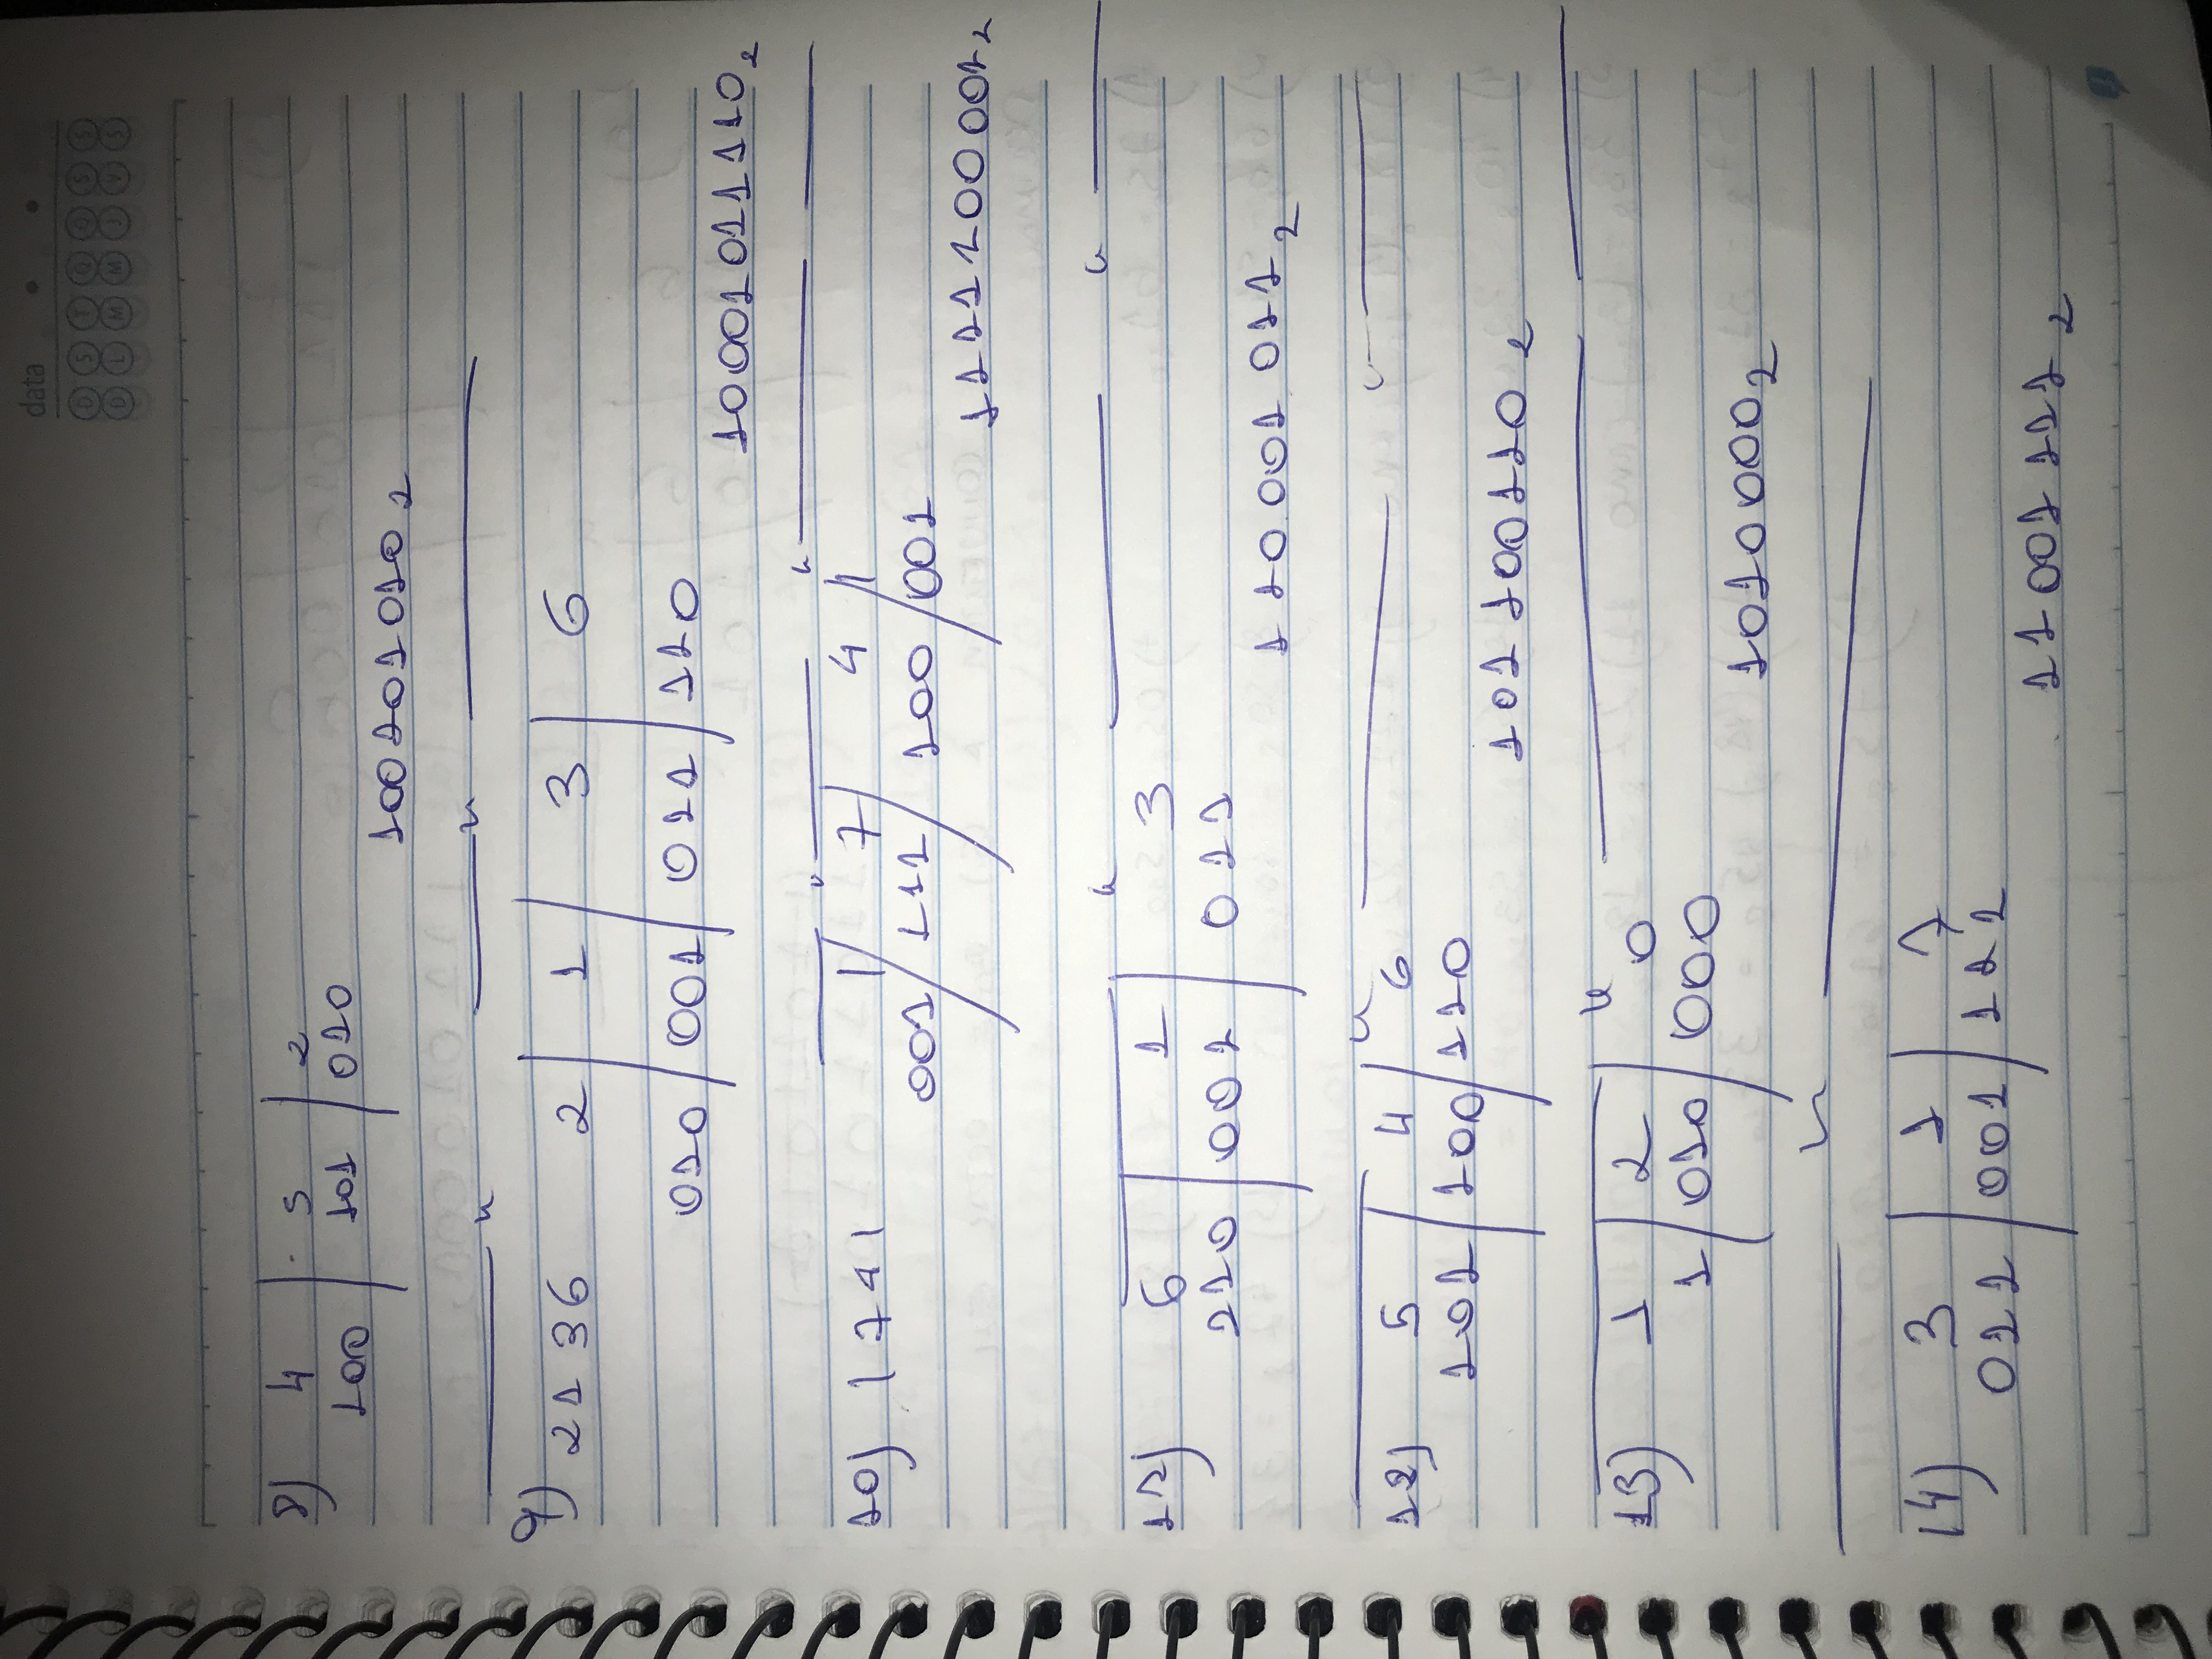 data
D S T Q Q S S
D L M M J V S
8) 4 | 5 | 2
100 | 101 | 010
100101010 2
9) 2136 2 | 1 | 3 | 6
010 | 001 | 011 | 110
10001011110 2
10) 1741 1 | 7 | 4 | 1
001 | 111 | 100 | 001
1111100001 2
11) 6 | 1 | 3
110 | 001 | 011
110001011 2
12) 5 | 4 | 6
101 | 100 | 110
101100110 2
13) 1 | 2 | 0
1 | 010 | 000
1010000 2
14) 3 | 1 | 7
011 | 001 | 111
11001111 2